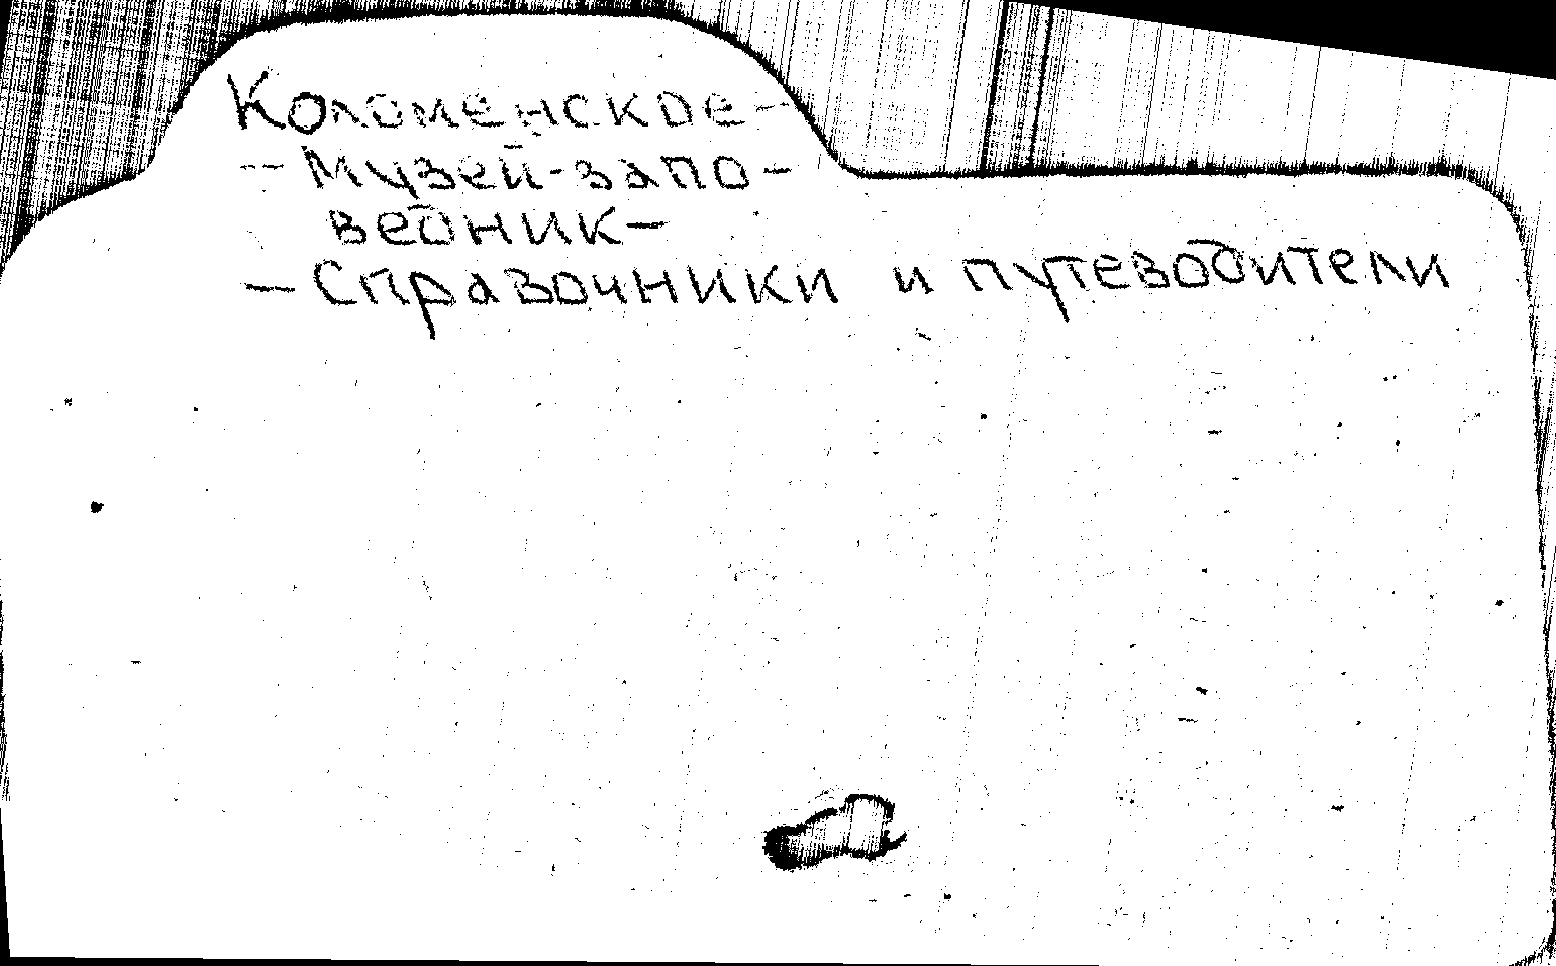 Коломенское -
- Музей-запо-
ведник -
- Справочники и путеводители